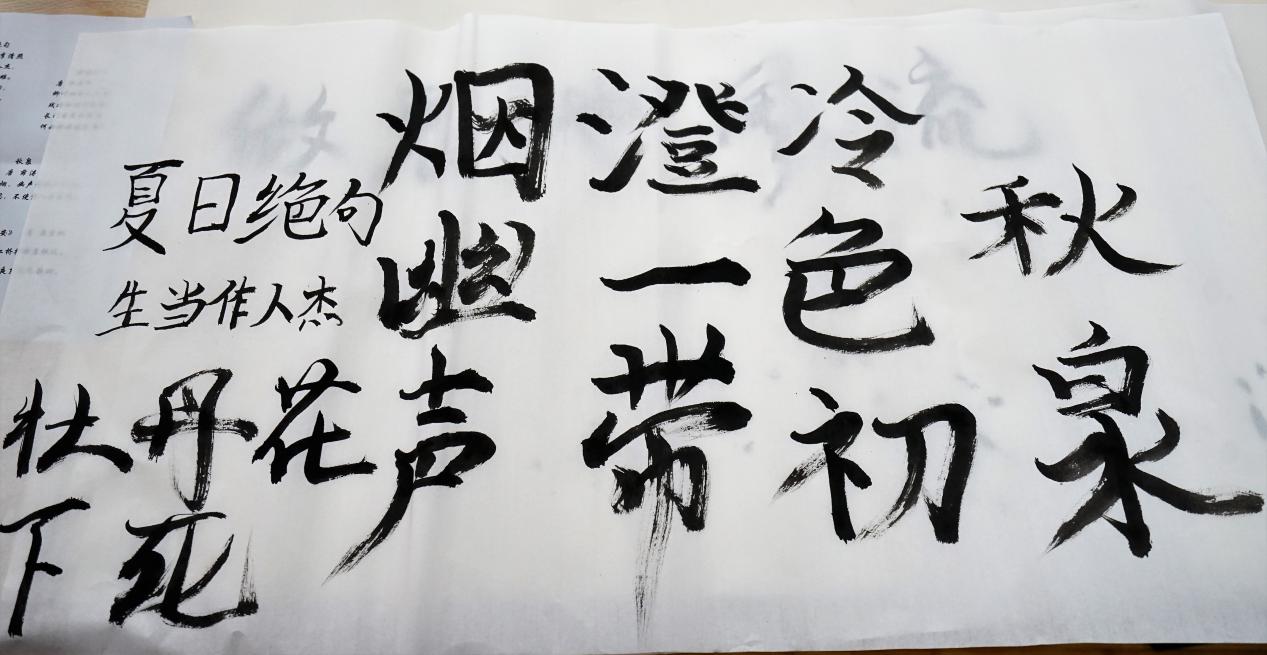 秋泉
冷色初
澄一带
烟幽声
夏日绝句
生当作人杰
牡丹花
下死
秋泉